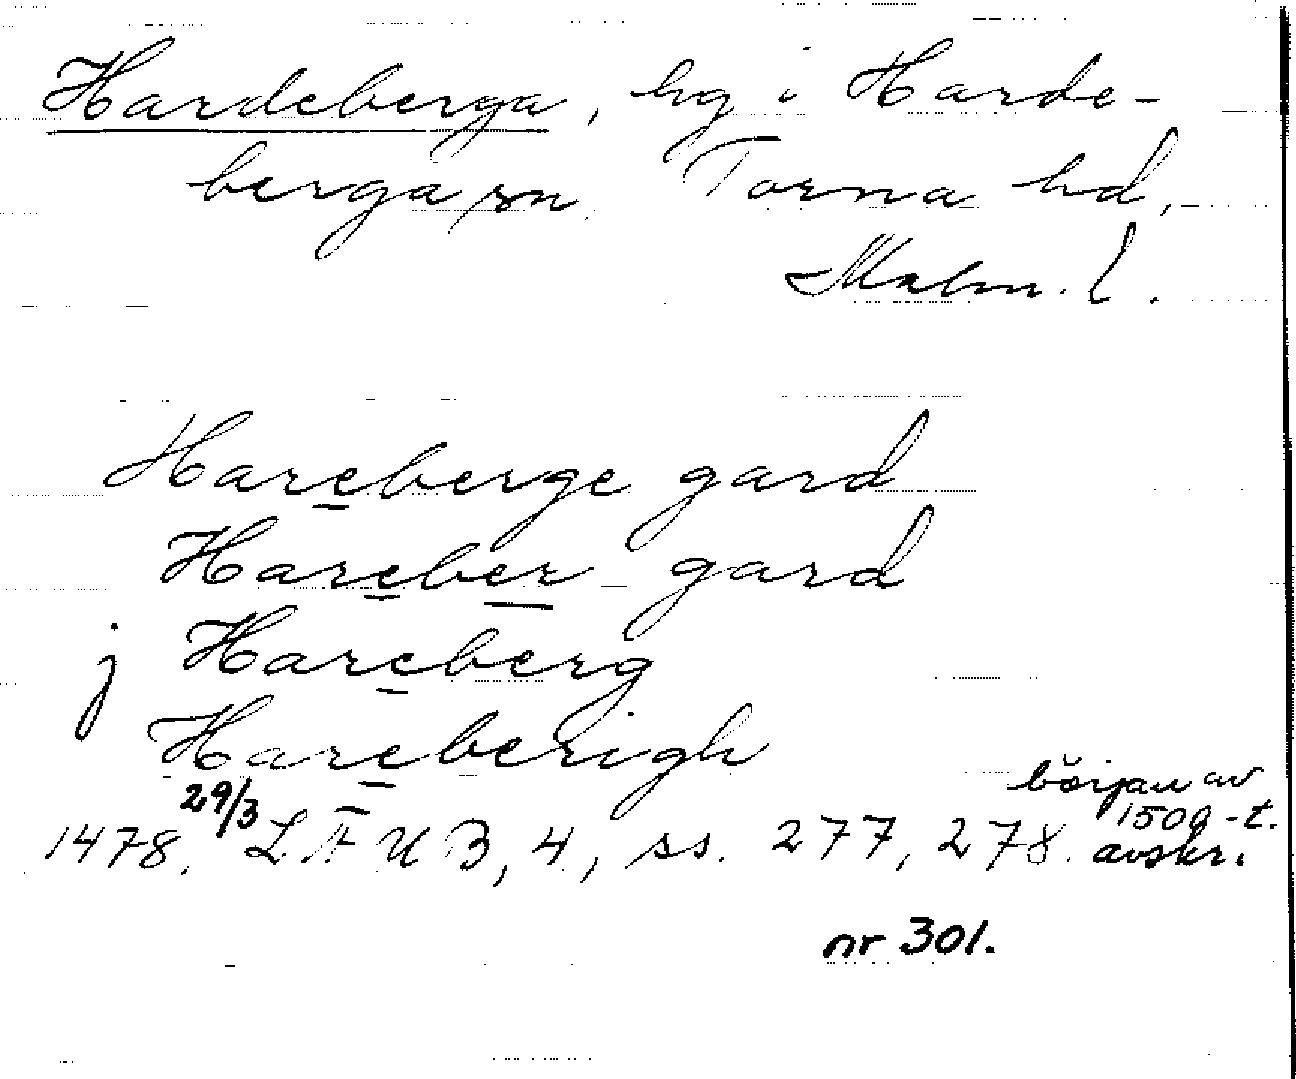 Hardeberga, hg i Harde-
berga sn. Torna hd,
Malm. l.
Hareberge gard
Hareber gard
j Hareberg
Hareberigh
1478, 29/3 LÄUB, 4, ss. 277, 278. början av
1500-t.
avskr.
nr 301.